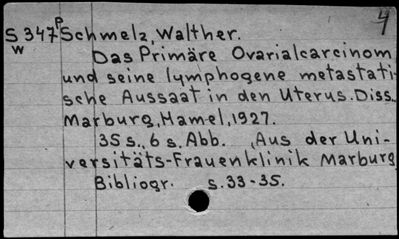 4
S 347 P Schmelz, Walther.
W
Das Primäre Ovarialcarcinom
und seine lymphogene metastati-
sche Aussaat in den Uterus. Diss.
Marburg, Hamel, 1927.
35 s., 6 s. Abb. „Aus der Uni-
versitäts-Frauenklinik Marburg
Bibliogr. s. 33-35.